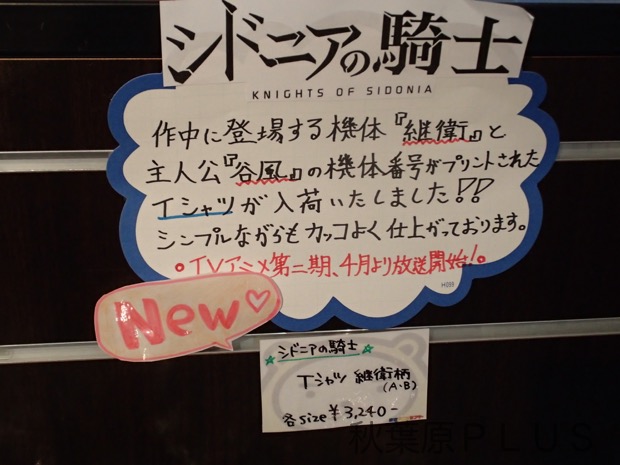 シドニアの騎士
KNIGHTS OF SIDONIA
作中に登場する機体『継衛』と
主人公『谷風』の機体番号がプリントされた
Tシャツが入荷いたしました!!
シンプルながらもカッコよく仕上がっております。
○TVアニメ第二期、4月より放送開始!○
H098
New♡
☆シドニアの騎士☆
Tシャツ 継衛柄
(A・B)
各size ¥3,240-
秋葉原PLUS